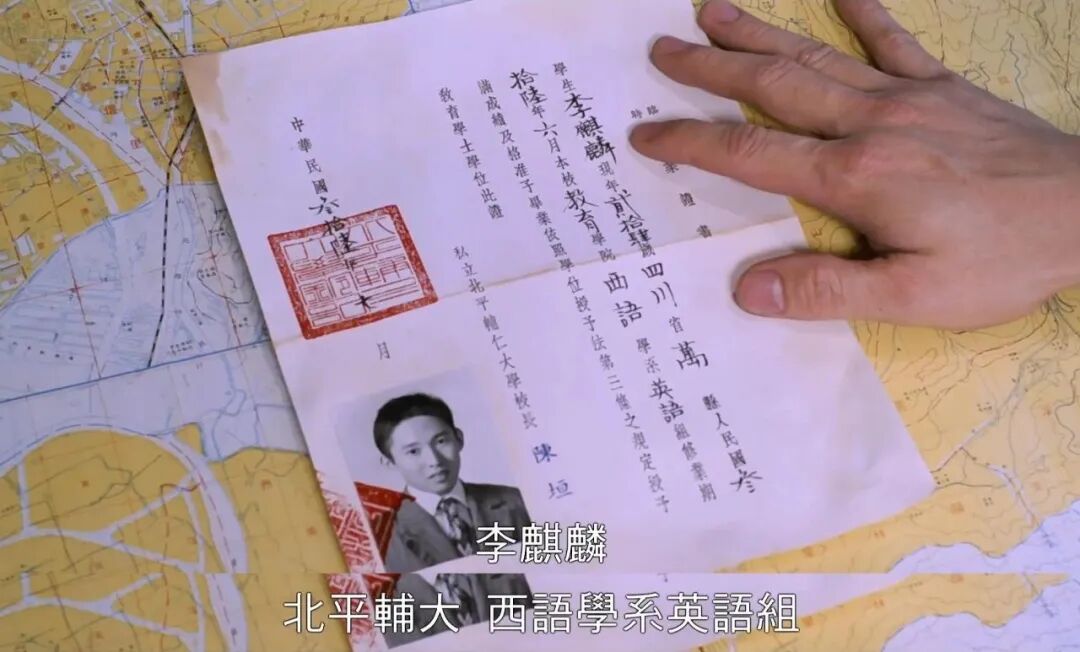 臨時
業證書
學生李麒麟現年貳拾肆歲四川省萬縣人民國叁
拾陸年六月本校教育學院西語學系英語組修業期
滿成績及格准予畢業依照學位授予法第三條之規定授予
教育學士學位此證
私立北平輔仁大學校長 陳垣
中華民國叁拾陸年六月
李麒麟
北平輔大 西語學系英語組